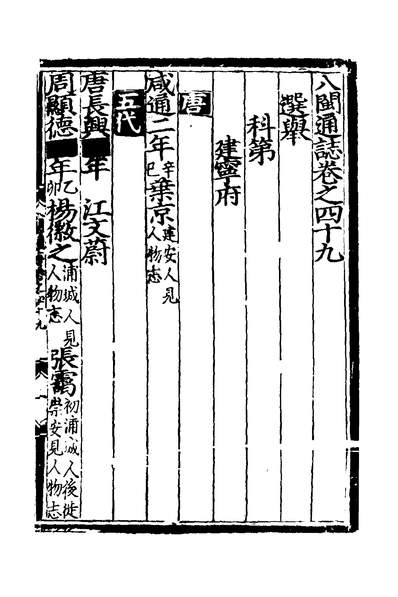 八閩通誌卷之四十九
選舉
科第
建寧府
唐
咸通二年辛巳葉京建安人見人物志
五代
唐長興年 江文蔚
周顯德年乙卯楊徽之浦城人見人物志 張靄初浦城人後徙崇安見人物志